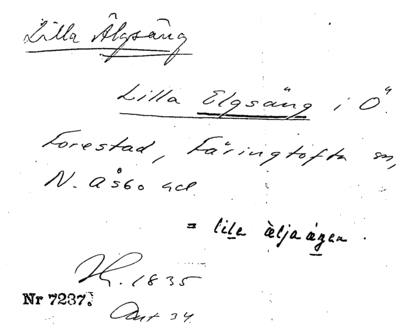 Lilla Älgsäng
Lilla Elgsäng i Ö
Forestad, Färingtofta sn,
N. Åsbo hd
= lile àlja ágen.
H. 1835
Nr 7237.
Ant 34